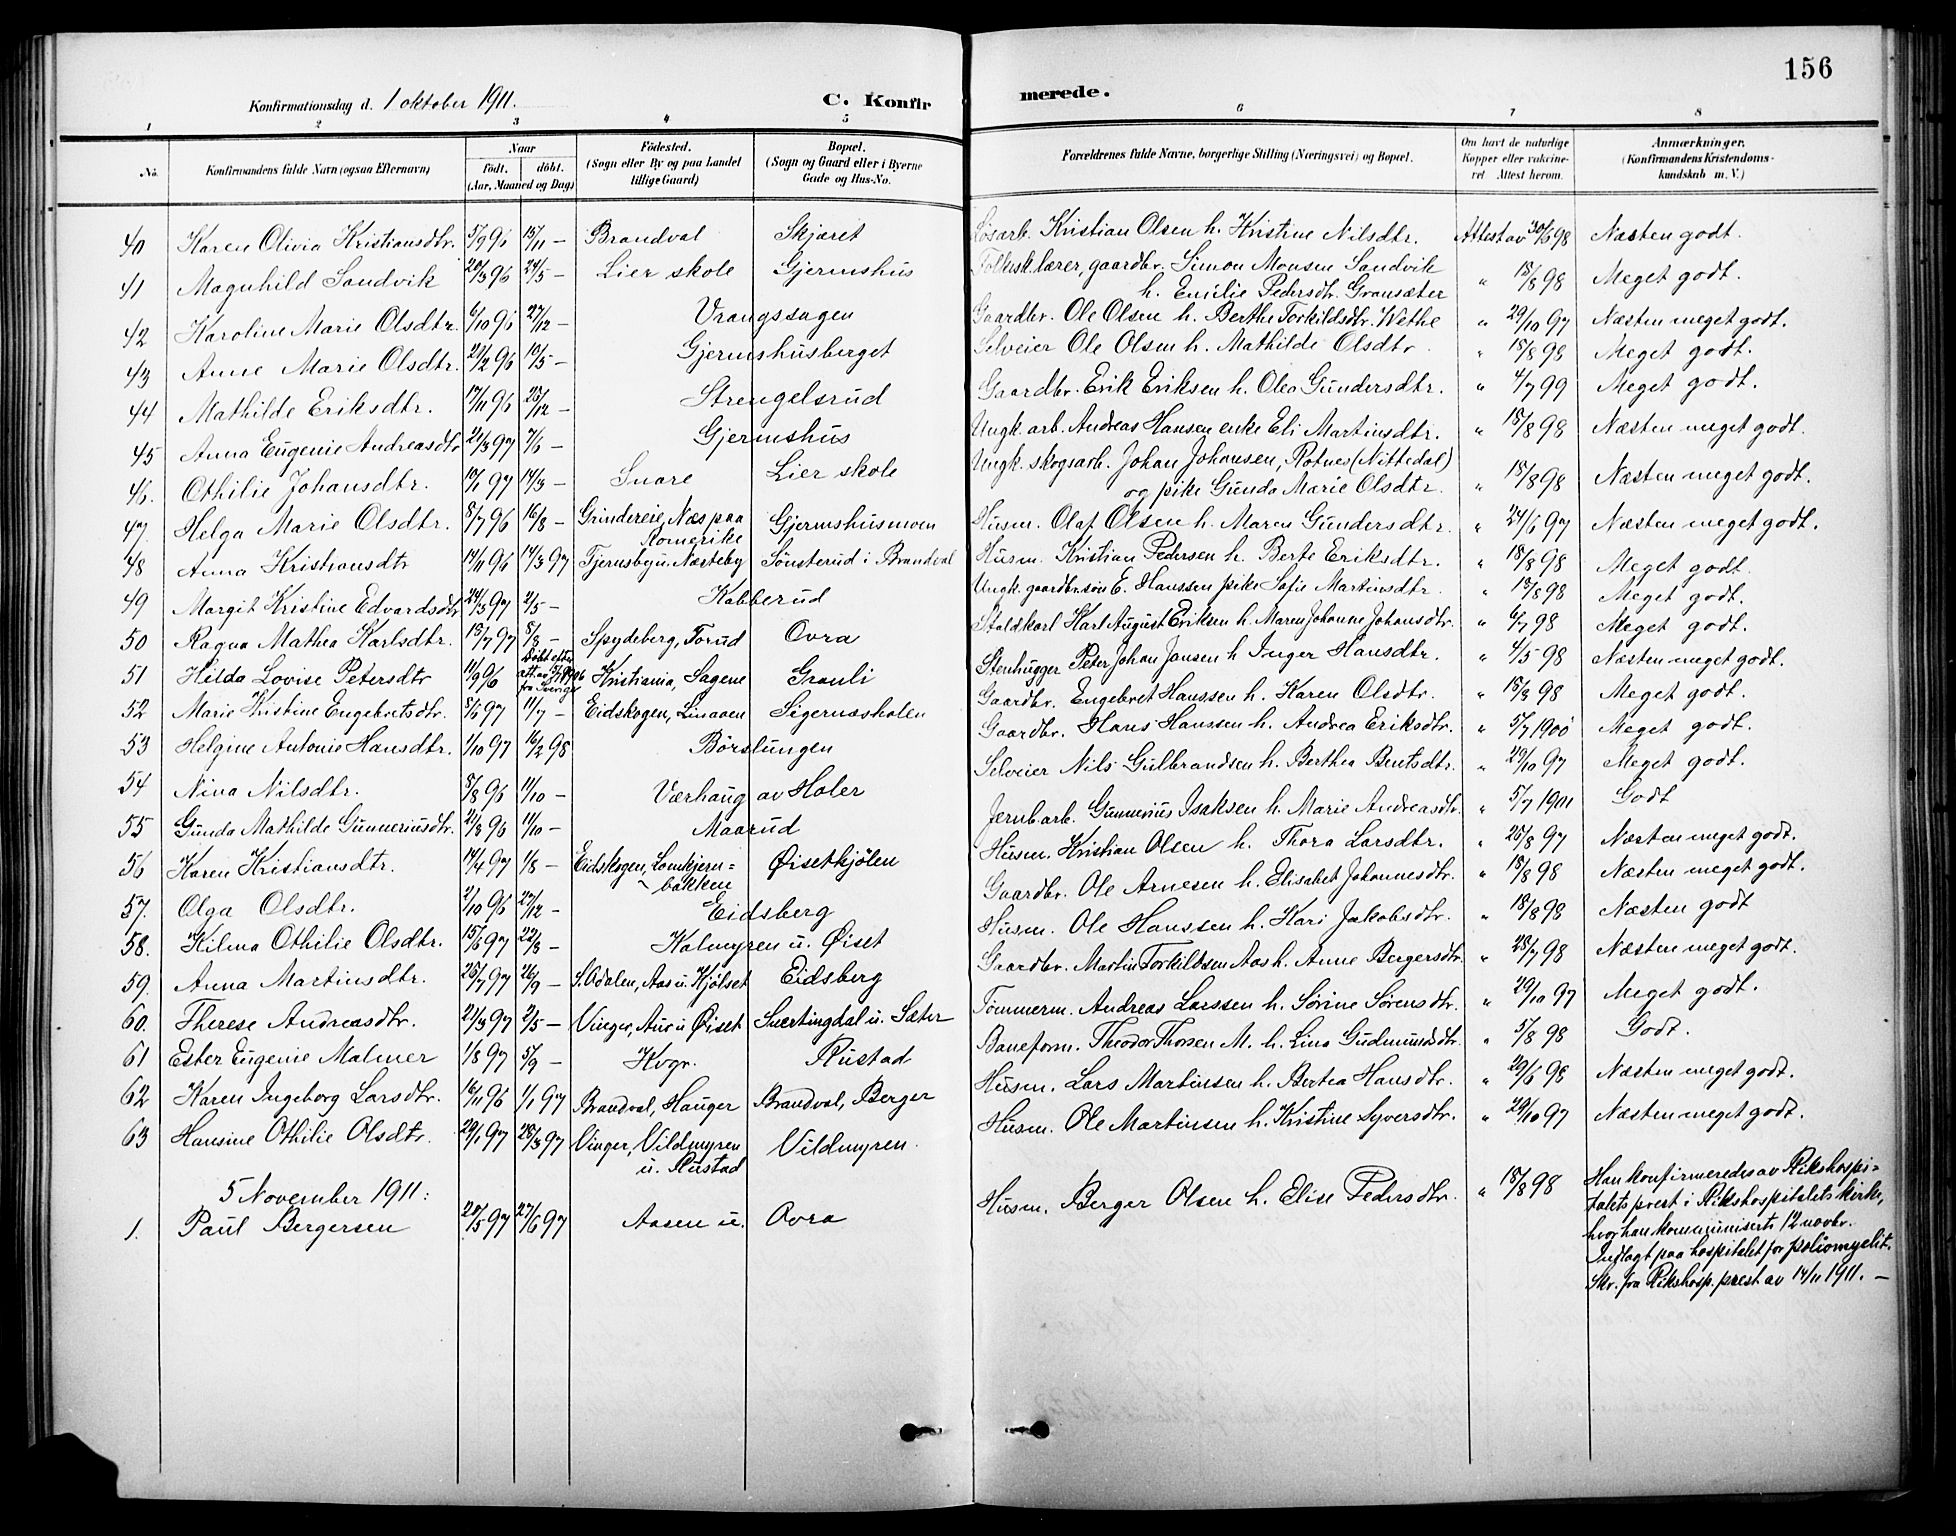 156
Konfirmationsdag d. 1 oktober 1911.
C. Konfirmerede.
1 2 3 4 5 6 7 8
No. Konfirmandens fulde Navn (ogsaa Efternavn) Naar födt. döbt. (Aar, Maaned og Dag) Födested. (Sogn eller By og paa Landet tillige Gaard) Bopæl. (Sogn og Gaard eller i Byerne Gade og Hus-No. Forældrenes fulde Navne, borgerlige Stilling (Næringsvei) og Bopæl. Om havt de naturlige Kopper eller vakcineret Attest herom. Anmærkninger. (Konfirmandens Kristendomskundskab m. V.)
40 Karen Olivia Kristiansdtr. 5/9 96 15/11 – Brandval Skjæret Løsarb. Kristian Olsen h. Kristine Nilsdtr. Attest av 30/6 98 Næsten godt.
41 Magnhild Sandvik 20/3 96 24/5 – Lier skole Gjermshus Folkesk.lærer, gaardbr. Simon Monsen Sandvik
h. Emilie Pedersdtr. Gransæter " 18/8 98 Meget godt.
42 Karoline Marie Olsdtr. 6/10 96 27/12 – Vrangssagen Gaardbr. Ole Olsen h. Berthe Torkildsdtr. Wethe " 29/10 97 Næsten meget godt.
43 Anne Marie Olsdtr. 21/2 96 10/5 – Gjermshusberget Selveier Ole Olsen h. Mathilde Olsdtr " 18/8 98 Meget godt.
44 Mathilde Eriksdtr. 17/11 96 23/12 – Strengelsrud Gaardbr. Erik Eriksen h. Olea Gundersdtr. " 4/7 99 Meget godt.
45 Anna Eugenie Andreasdtr 21/3 97 7/6 – Gjermshus Ungk. arb. Andreas Hansen enke Eli Martinsdtr. " 18/8 98 Næsten meget godt.
46. Othilie Johansdtr. 10/1 97 14/3 – Snare Lier skole Ungk. skogsarb. Johan Johansen, Rotnes (Nittedal)
og pike Gunda Marie Olsdtr. " 18/8 98 Næsten meget godt.
47. Helga Marie Olsdtr. 8/7 96 16/8 – Grindereie, Næs paa
Romerike Gjermshusmoen Husm. Olaf Olsen h. Maren Gundersdtr. " 24/6 97 Næsten meget godt.
48 Anna Kristiansdtr 14/11 96 14/3 97 Tjernsby u. Næsteby Sönsterud i Brandval Husm. Kristian Pedersen h. Berte Eriksdtr. " 18/8 98 Meget godt.
49 Margit Kristine Edvardsdtr 24/3 97 2/5 – Kabberud Ungk. gaardbr.søn E. Hanssen pike Sofie Martinsdtr. " 18/8 98 Meget godt.
50 Ragna Mathea Karlsdtr. 13/7 97 8/8 – Spydeberg, Torud Ovra Staldkarl Karl August Eriksen h. Maren Johanne Johansdtr. " 6/7 98 Meget godt.
51 Hilda Lovise Petersdtr 11/9 96 Döbt efter
fra Sverige Kristiania, Sagene Granli Stenhugger Peter Johan Jansen h. Inger Hansdtr. " 4/5 98 Næsten meget godt.
52 Marie Kristine Engebretsdtr. 8/6 97 11/7 – Eidskogen, Linaaen Sigernæsholen Gaardbr. Engebret Hanssen h. Karen Olsdtr. " 18/8 98 Meget godt.
53 Helgine Antonie Hansdtr. 1/10 97 16/2 98 Börslungen Gaardbr. Hans Hanssen h. Andrea Eriksdtr. " 5/7 1900 Meget godt.
54 Nina Nilsdtr. 8/8 96 11/10 – Værhaug av Holer Selveier Nils Gulbrandsen h. Berthea Bentsdtr. " 29/10 97 Meget godt.
55 Gunda Mathilde Gunneriusdtr. 21/8 96 11/10 – Maarud Jernb.arb. Gunnerius Isaksen h. Marie Andreasdtr. " 5/7 1901 Godt
56 Karen Kristiansdtr. 14/4 97 1/8 – Eidskogen, Lomkjern=
bakken Øisetkjölen Husm. Kristian Olsen h. Thora Larsdtr. " 25/8 97 Næsten meget godt.
57. Olga Olsdtr. 2/10 96 27/12 – Eidsberg Gaardbr. Ole Arnesen h. Elisabet Johannesdtr. " 18/8 98 Næsten meget godt.
58. Hilma Othilie Olsdtr. 15/6 97 22/8 – Kalmyren u. Øiset Husm. Ole Hanssen h. Kari Jakobsdtr. " 18/8 98 Næsten godt
59. Anna Martinsdtr. 25/7 97 26/9 – S. Odalen, Aas u. Kjölset Eidsberg Gaardbr. Martin Torkildsen Aas h. Anne Bergersdtr. " 28/7 98 Næsten meget godt.
60. Therese Andreasdtr. 21/3 97 2/5 – Vinger, Aur u. Øiset Svertingdal u. Sæter Tømmerm. Andreas Larssen h. Sørine Sørensdtr. " 29/10 97 Meget godt.
61 Ester Eugenie Malmer 1/8 97 5/9 – Kvgr. Rustad Baneform. Theodor Thorsen M. h. Lina Gudmundsdtr. " 5/8 98 Godt.
62 Karen Ingeborg Larsdtr. 16/11 96 1/1 97 Brandval, Hauger Brandval, Berger Husm. Lars Martinsen h. Bertea Hansdtr. " 29/6 98 Næsten meget godt.
63 Hansine Othilie Olsdtr. 29/1 97 28/3 97 Vinger, Vildmyren
u. Rustad Vildmyren. Husm. Ole Martinsen h. Kristine Syversdtr. " 29/10 97 Næsten meget godt.
5 November 1911:
1. Paul Bergersen 20/5 97 27/6 97 Aasen u. Ovra Husm. Berger Olsen h. Elise Pedersdtr. " 18/8 98 Han konfirmeredes av Rikshospi=
talets prest i Rikshospitalets kirke,
hvor han kommuniserte 12 novbr.
Indlagt paa hospitalet for poliomyelit.
Skr. fra Rikshosp. prest av 14/11 1911. –